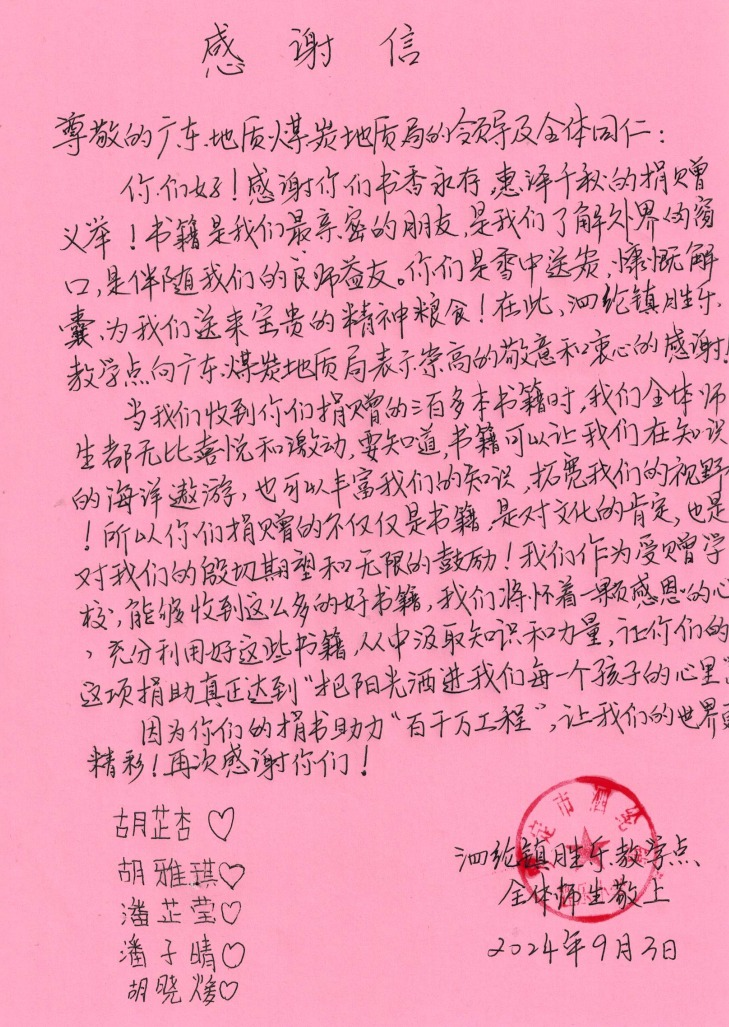 感谢信
尊敬的广东地质煤炭地质局的领导及全体同仁：
你们好！感谢你们书香永存,惠泽千秋的捐赠
义举！书籍是我们最亲密的朋友,是我们了解外界的窗
口,是伴随我们的良师益友。你们是雪中送炭,慷慨解
囊,为我们送来宝贵的精神粮食！在此,泗纶镇胜乐
教学点向广东煤炭地质局表示崇高的敬意和衷心的感谢!
当我们收到你们捐赠的三百多本书籍时,我们全体师
生都无比喜悦和激动,要知道,书籍可以让我们在知识
的海洋遨游,也可以丰富我们的知识,拓宽我们的视野
！所以你们捐赠的不仅仅是书籍,是对文化的肯定,也是
对我们的殷切期望和无限的鼓励！我们作为受赠学
校,能够收到这么多的好书籍,我们将怀着一颗感恩的心
,充分利用好这些书籍,从中汲取知识和力量,让你们的
这项捐助真正达到“把阳光洒进我们每一个孩子的心里”
因为你们的捐书助力“百千万工程”,让我们的世界更
精彩！再次感谢你们！
胡芷杏♡
胡雅琪♡
潘芷莹♡
潘子晴♡
胡晓♡
定市泗纶
泗纶镇胜乐教学点
全体师生敬上
2024年9月3日